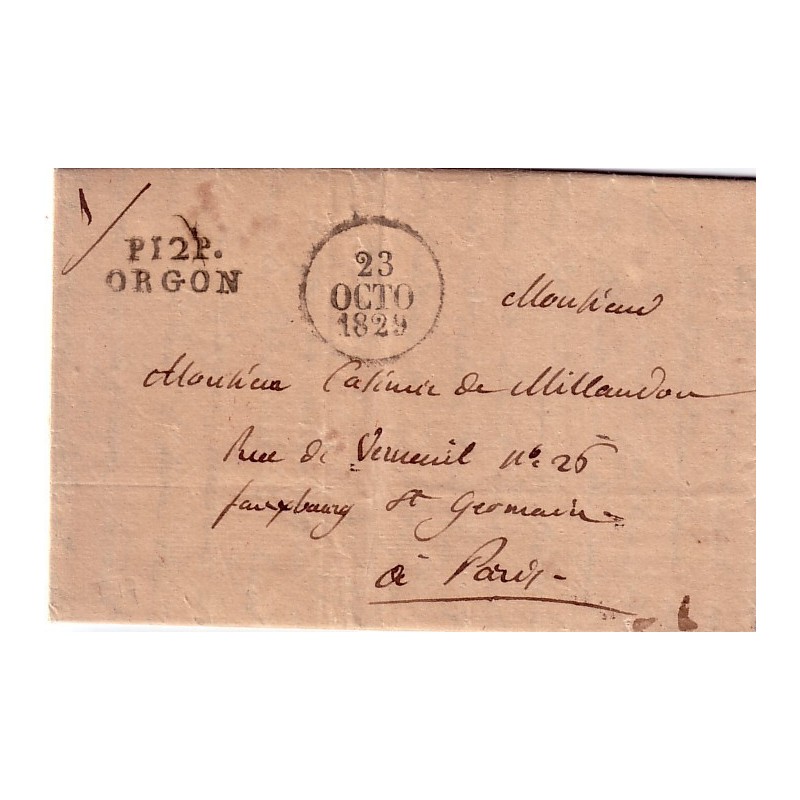 P12P.
ORGON
23
OCTO
1829
Monsieur
Monsieur Casimir de Millaudon
Rue de Verneuil No 26
fauxbourg St Germain
à Paris